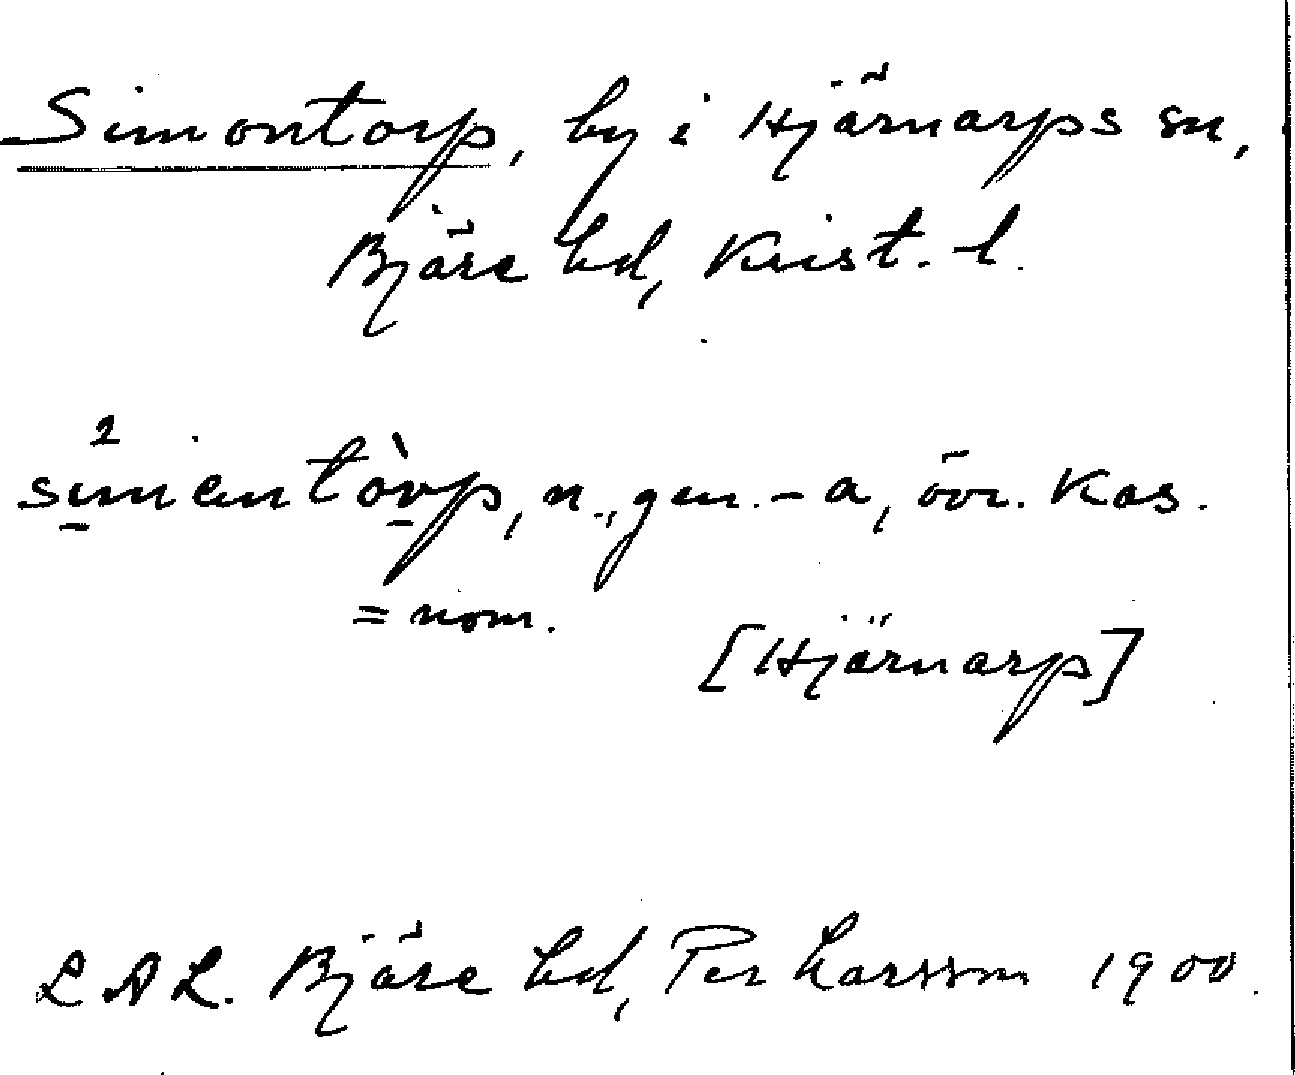 Simontorp, by i Hjärnarps sn,
Bjäre hd, Krist. l.
simentòrp, n., gen. -a, övr. kas.
= nom.
[Hjärnarp]
L A L. Bjäre hd, Per Larsson 1900.